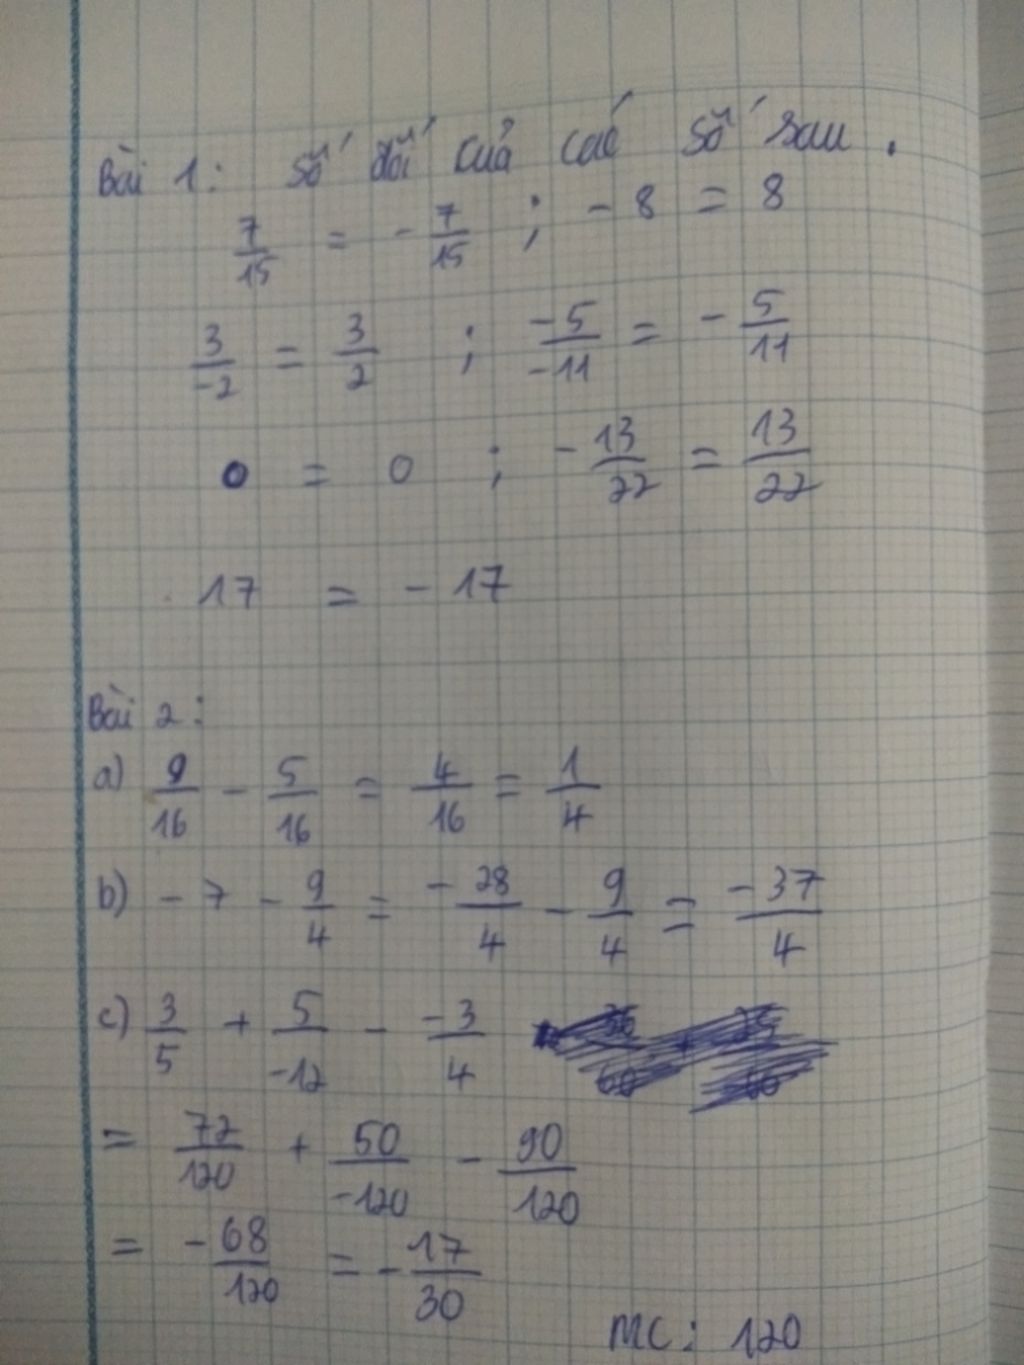 Bài 1: số đối của các số sau.
7/15 = -7/15 ; -8 = 8
3/-2 = 3/2 ; -5/-11 = -5/11
0 = 0 ; -13/22 = 13/22
17 = -17
Bài 2:
a) 9/16 - 5/16 = 4/16 = 1/4
b) -7 - 9/4 = -28/4 - 9/4 = -37/4
c) 3/5 + 5/-12 - -3/4
= 72/120 + 50/-120 - 90/120
= -68/120 = -17/30
MC: 120